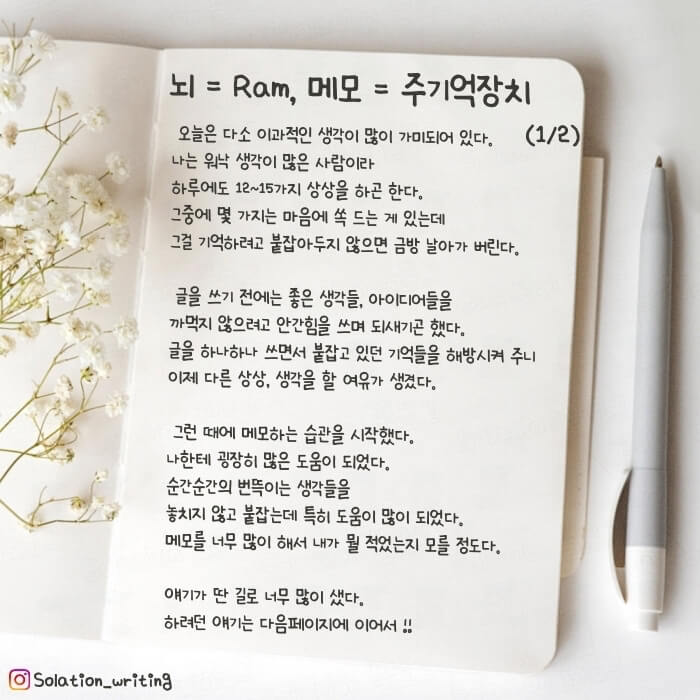 뇌 = Ram, 메모 = 주기억장치
(1/2)
오늘은 다소 이과적인 생각이 많이 가미되어 있다.
나는 워낙 생각이 많은 사람이라
하루에도 12~15가지 상상을 하곤 한다.
그중에 몇 가지는 마음에 쏙 드는 게 있는데
그걸 기억하려고 붙잡아두지 않으면 금방 날아가 버린다.
글을 쓰기 전에는 좋은 생각들, 아이디어들을
까먹지 않으려고 안간힘을 쓰며 되새기곤 했다.
글을 하나하나 쓰면서 붙잡고 있던 기억들을 해방시켜 주니
이제 다른 상상, 생각을 할 여유가 생겼다.
그런 때에 메모하는 습관을 시작했다.
나한테 굉장히 많은 도움이 되었다.
순간순간의 번뜩이는 생각들을
놓치지 않고 붙잡는데 특히 도움이 많이 되었다.
메모를 너무 많이 해서 내가 뭘 적었는지 모를 정도다.
얘기가 딴 길로 너무 많이 샜다.
하려던 얘기는 다음페이지에 이어서 !!
Solation_writing